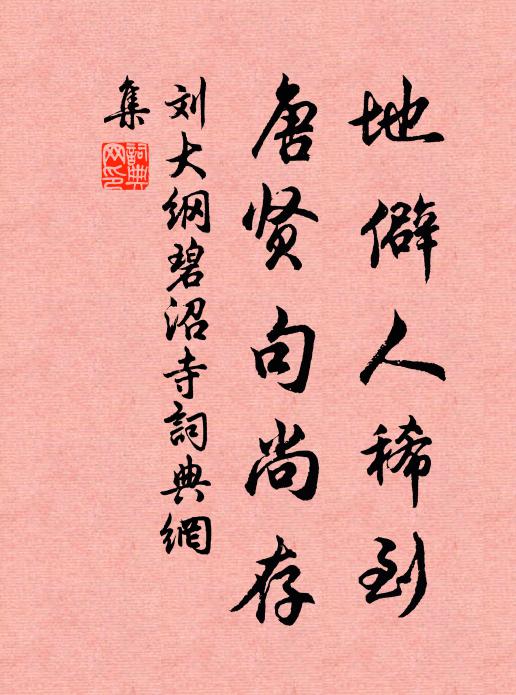 地僻人稀到
唐贤句尚存
刘大纲碧沼寺詞典網
集
詞典網印